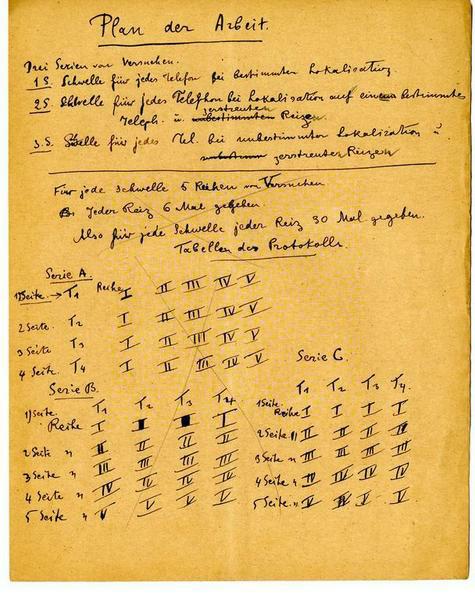 Plan der Arbeit.
Drei Serien von Versuchen.
1 S. Schwelle für jedes Telefon bei bestimmten Lokalisation.
2 S. Schwelle für jedes Telefon bei Lokalisation auf einem bestimmtes
zerstreuten
Teleph. u. unbestimmten Reizen.
3. S. Schwelle für jedes Tel. bei unbestimmter Lokalization u.
zerstreuten Reizen
Für jede Schwelle 5 Reihen von Versuchen
Jeder Reiz 6 Mal gegeben.
Also für jede Schwelle jeder Reiz 30 Mal gegeben.
Tabellen des Protokolls.
Serie A.
1) Seite. → T1 Reihe I II III IV V
2 Seite. T2 I II III IV V
3 Seite T3 I II III IV V
4 Seite. T4 I II III IV V
Serie B.
1) Seite T1 T2 T3 T4
Reihe I I
2 Seite " II II II II
3 Seite " III III III III
4 Seite " IV IV IV IV
5 Seite " V V V V
Serie C.
T1 T2 T3 T4.
1 Seite.
Reihe I I I I
2 Seite " II II II II
3 Seite " III III III III
4 Seite " IV IV IV IV
5 Seite. " V V V V